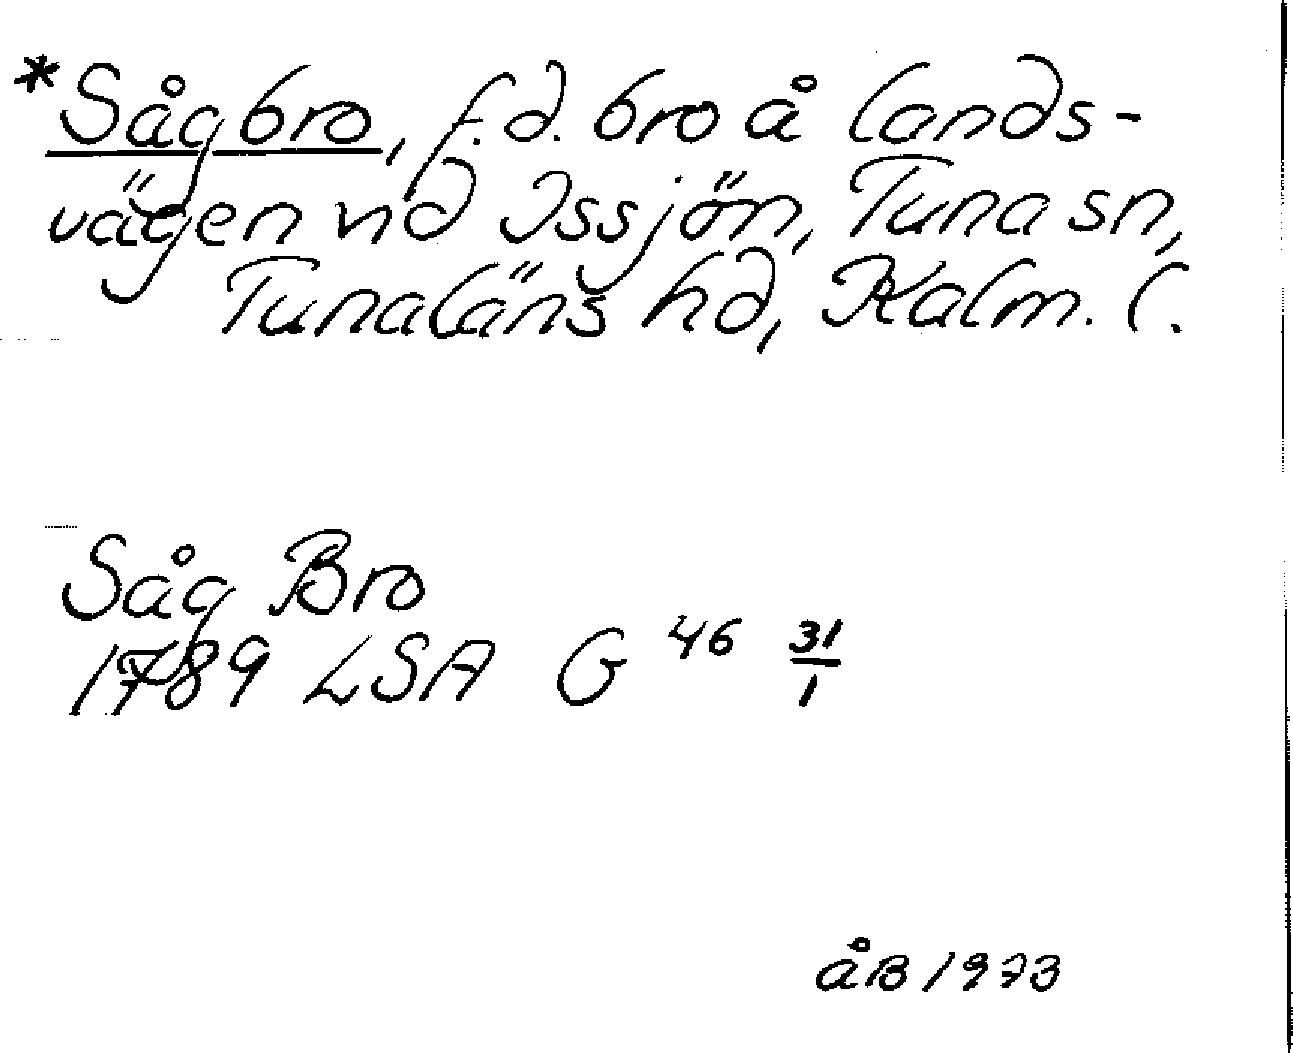 *Sågbro, f.d. bro å lands-
vägen vid Issjön, Tuna sn,
Tunaläns hd, Kalm. l.
Såg Bro
1789 LSA G 46 31/1
åB 1973